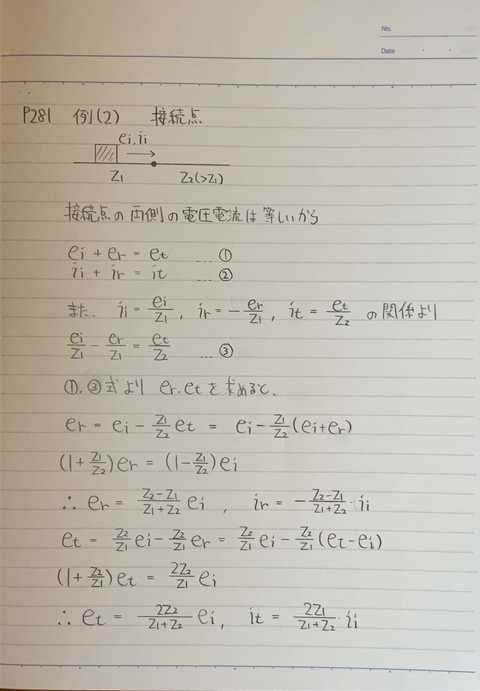 No.
Date
P281 例1(2) 接続点
ei, ii
Z1 Z2(>Z1)
接続点の両側の電圧電流は等しいから
ei + er = et ... ①
ii + ir = it ... ②
また、 ii = ei/Z1, ir = -er/Z1, it = et/Z2 の関係より
ei/Z1 - er/Z1 = et/Z2 ... ③
①,③式より er, etを求めると、
er = ei - Z1/Z2 et = ei - Z1/Z2 (ei+er)
(1+Z1/Z2)er = (1-Z1/Z2)ei
∴ er = Z2-Z1/Z1+Z2 ei , ir = -Z2-Z1/Z1+Z2 ・ii
et = Z2/Z1 ei - Z2/Z1 er = Z2/Z1 ei - Z2/Z1 (et-ei)
(1+Z2/Z1)et = 2Z2/Z1 ei
∴ et = 2Z2/Z1+Z2 ei, it = 2Z1/Z1+Z2 ・ii